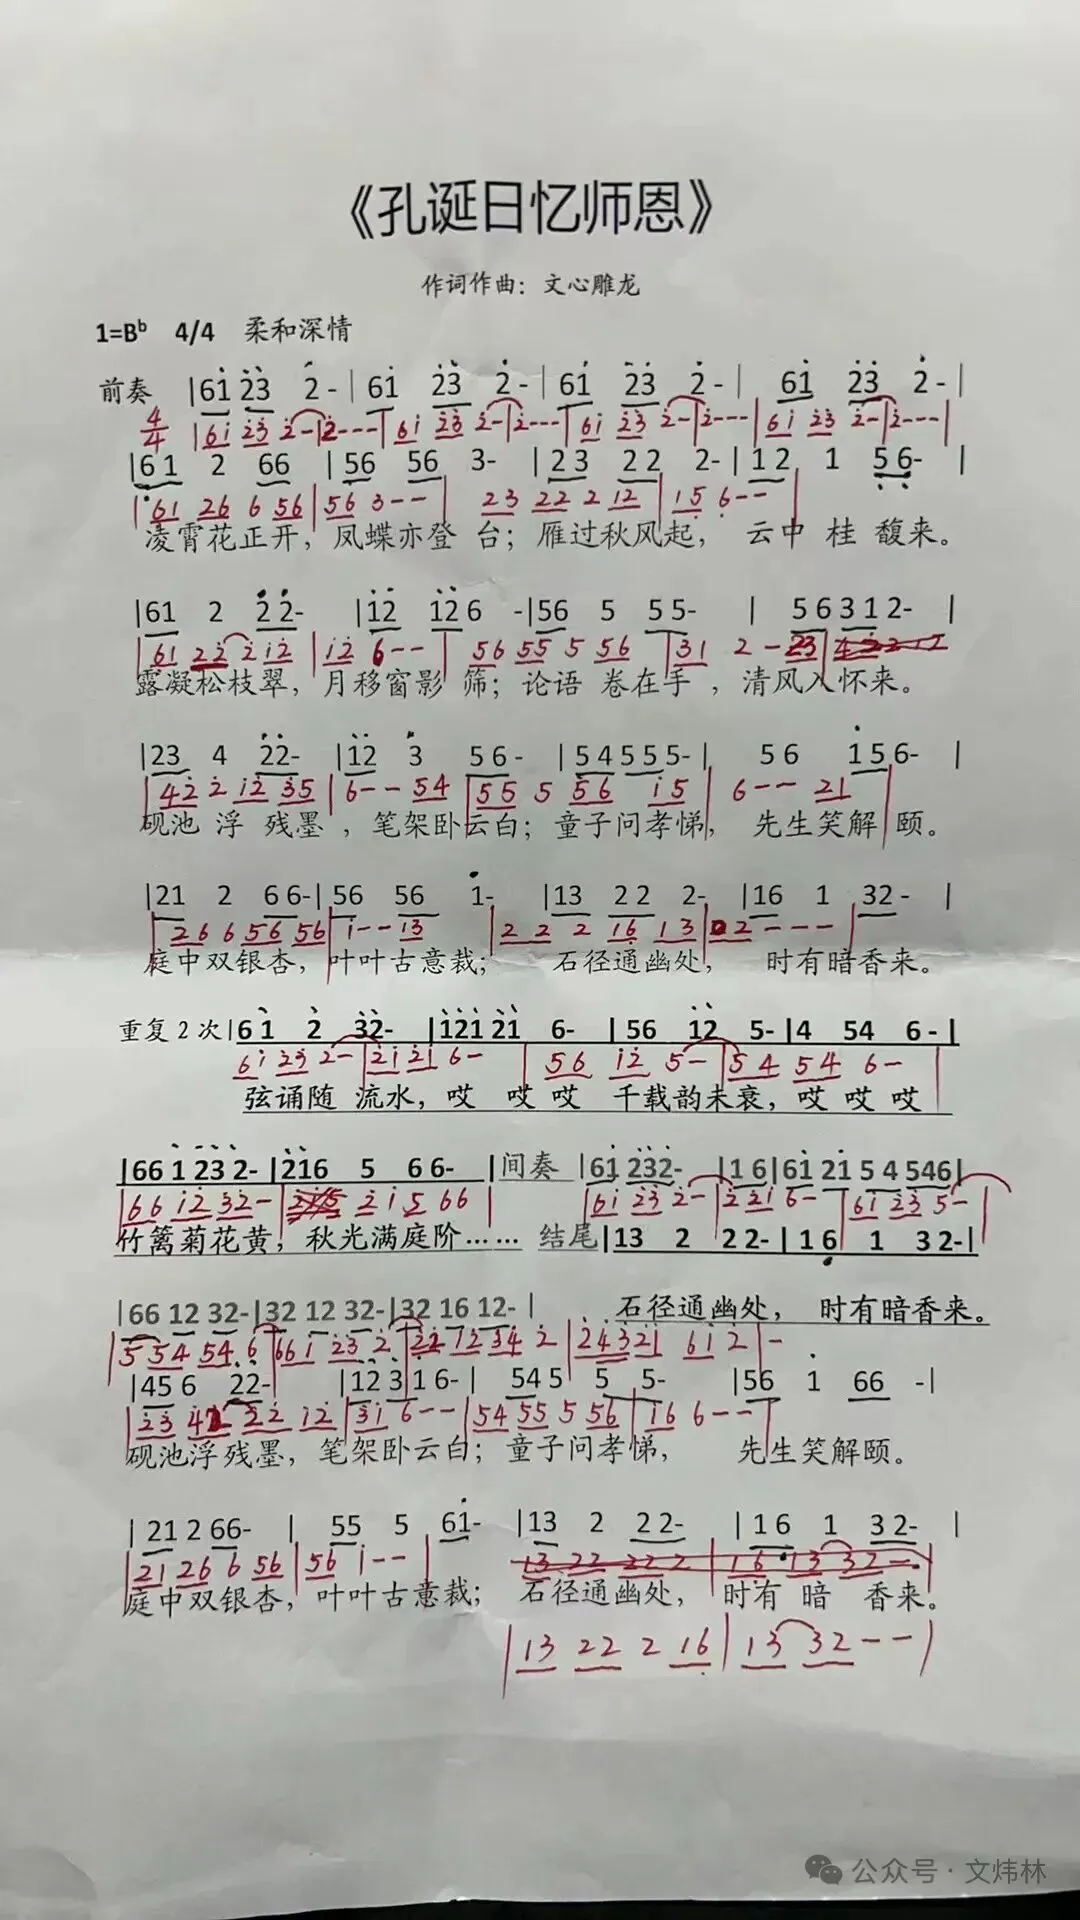 《孔诞日忆师恩》
作词作曲：文心雕龙
1=Bb 4/4 柔和深情
前奏 |61 23 2-|61 23 2-|61 23 2-| 61 23 2-|
4/4 |61 23 2-|2---|61 23 2-|2---|61 23 2-|2---|61 23 2-|2---|
|61 2 66 |56 56 3- |23 22 2-|12 1 56- |
|61 26 6 56|56 3-- 23 22 2 12|15 6--|
凌霄花正开，凤蝶亦登 台；雁过秋风起， 云中 桂 馥来。
|61 2 22- |12 12 6 -|56 5 55- | 56 312- |
|61 22 2 12|12 6-- 56 55 5 56|31 2-23|
露凝松枝翠，月移窗影 筛；论语 卷在手，清风入怀来。
|23 4 22- |12 3 56- |54 555-| 56 156- |
|42 2 12 35|6-- 54|55 5 56 15|6-- 21|
砚池 浮 残墨，笔架卧云白；童子问孝悌， 先生笑解 颐。
|21 2 66-|56 56 1- |13 22 2- |16 1 32- |
|26 6 56 56|1-- 13|2 2 2 16 13|2---|
庭中双银杏，叶叶古意裁； 石径通幽处， 时有暗香来。
重复2次|61 2 32- |121 21 6- |56 12 5-|4 54 6-|
61 23 2-|21 21 6-|56 12 5-|54 54 6-|
弦诵随 流水，哎 哎 哎 千载韵未衰，哎 哎 哎
|66 1 23 2-|216 5 66- |间奏 |61 232- |16|61 21 54 546|
|66 12 32-| 2 1 5 66|61 23 2-|221 6-|61 23 5-|
竹篱菊花黄，秋光满庭阶…… 结尾|13 2 22-|16 1 32-|
|66 12 32-|32 12 32-|32 16 12- | 石径通幽处， 时有暗香来。
|5 54 54 6|661 23 2|22 12 34 2|24321 612|-
|456 22- |12 316-| 545 5 5- |56 1 66 -|
|23 42 22 12|31 6--|54 55 5 56|16 6--|
砚池浮残墨，笔架卧云白；童子问孝悌， 先生笑解颐。
|21 2 66- | 55 5 61- |13 2 22- |16 1 32- |
|21 26 6 56|56 1--|13 22 22 2|16 13 32--|
庭中双银杏，叶叶古意裁； 石径通幽处， 时有 暗 香来。
|13 22 2 16|13 32--|
公众号·文炜林